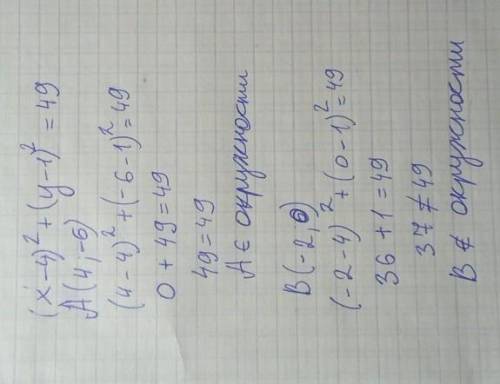 (x-4)² + (y-1)² = 49
A(4,-6)
(4-4)² + (-6-1)² = 49
0 + 49 = 49
49 = 49
A ∈ окружности
B(-2,0)
(-2-4)² + (0-1)² = 49
36 + 1 = 49
37 ≠ 49
B ∉ окружности